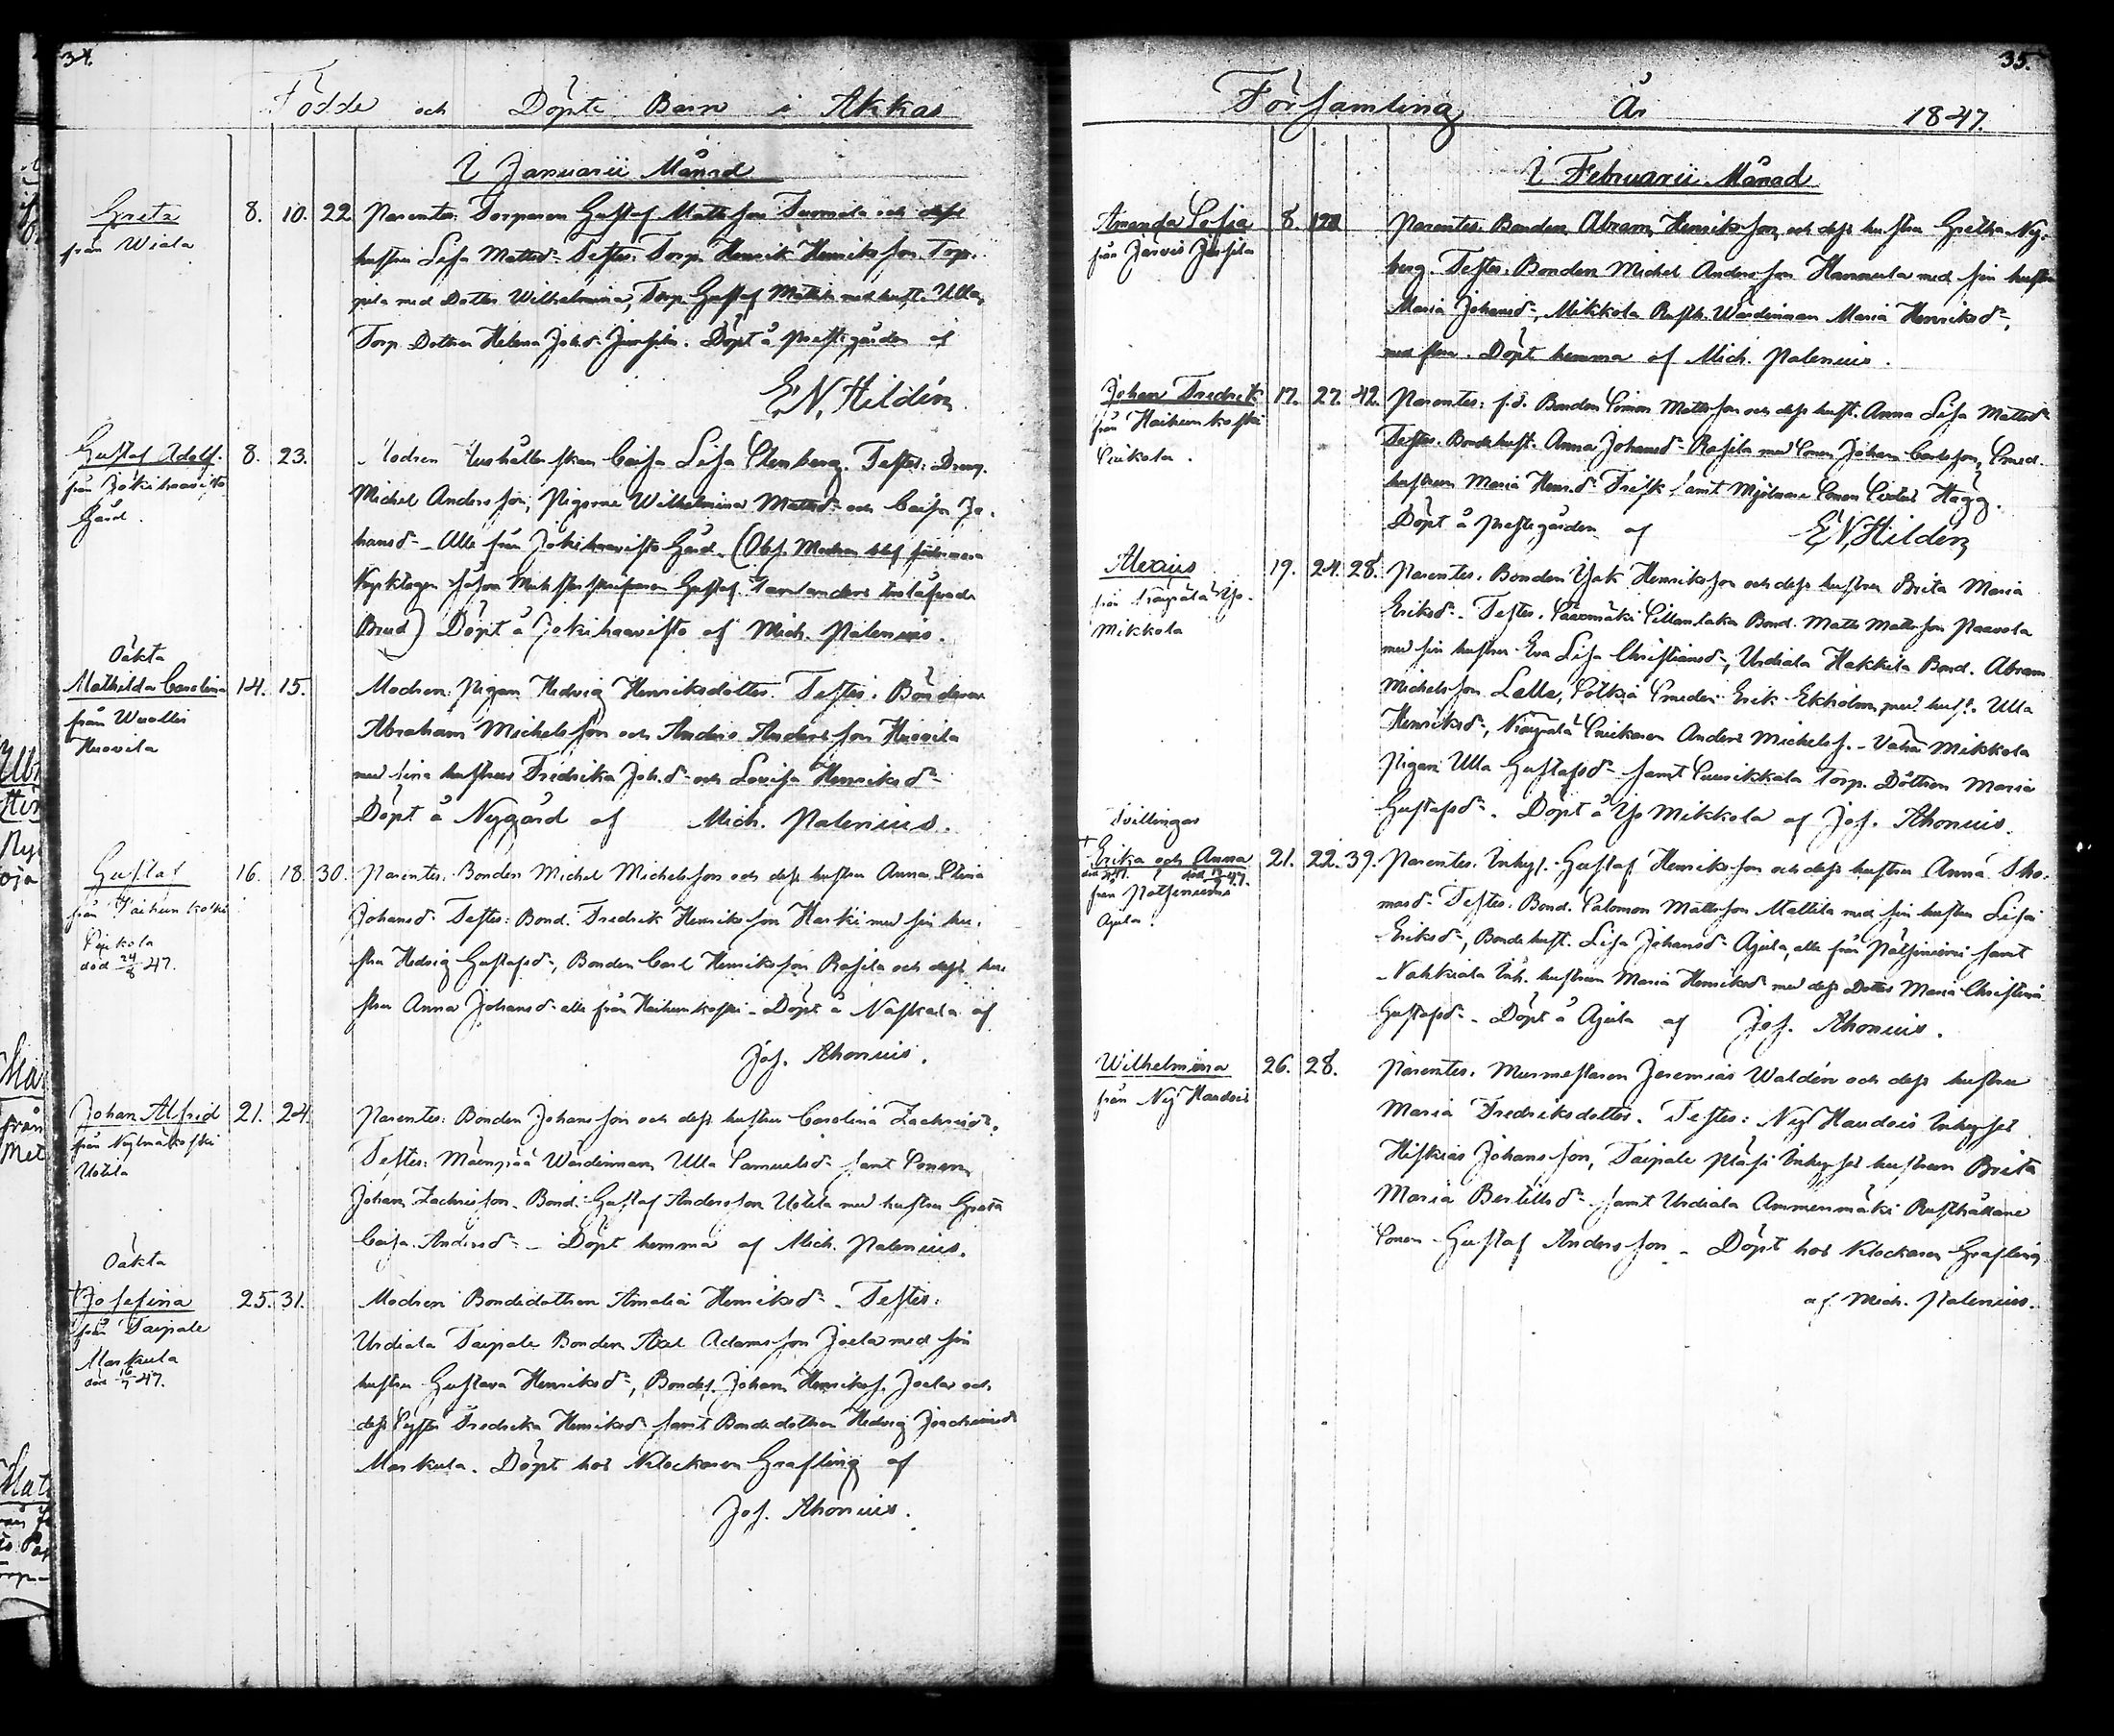 34.
Födde och Döpte Barn i Akkas
I Januarii Månad
Greta
från Wiala
8. 10. 22.
Parentes: Torparen Gustaf Mattsson Tuomola och dess
hustru Lisa Mattsd:r Testes: Torp. Henrik Henriksson Torp-
pila med Dotter Wilhelmina, Torp. Gustaf Mattila med hust. Ulla,
Torp. Dottren Helena Johsd:r Jussila. Döpt å Prestgården af
E. N. Hildén
Gustaf Adolf.
från Jokihaavisto
Gård.
8. 23.
Modren Hushållerskan Caisa Lisa Stenberg. Testes: Dreng.
Michel Andersson, Pigorne Wilhelmina Mattsd:r och Caisa Jo-
hansd:r Alle från Jokihaavisto Gård. (Obs. Modren blef
Gustaf
Brud) Döpt å Jokihaavisto af Mich. Palenius.
Oäkta
Mathilda Carolina
från Wuollis
Huovila
14. 15.
Modren: Pigan Hedvig Henriksdotter. Testes: Bönderne
Abraham Michelsson och Anders Andersson Huovila
med sina hustrur Fredrika Joh.d:r och Lovisa Henriksd:r
Döpt å Nygård af Mich. Palenius.
Gustaf
från Haihunkoski
död 24/8 47.
16. 18. 30.
Parentes: Bonden Michel Michelsson och dess hustru Anna Stina
Johansd:r Testes: Bond. Fredrik Henriksson Harki med sin hu-
stru Hedvig Gustafsd:r, Bonden Carl Henriksson Rasila och dess hu-
stru Anna Johansd:r alla från Haihunkoski. Döpt å Naskala af
Jos. Ahonius.
Johan Alfrid
från Nylmäkoski
Uotila
21. 24.
Parentes: Bonden Johansson och dess hustru Carolina Zachrisd:r.
Testes: Mäenpää Wärdinnan Ulla Samuelsd:r samt Sonen
Johan Zachrisson. Bond. Gustaf Andersson Uotila med hustru Greta
Caisa Andersd:r – Döpt hemma af Mich. Palenius.
Oäkta
† Josefina
från Taipale
Markula
död 16/7 47.
25. 31.
Modren Bondedottren Amalia Henriksd:r. Testes:
Urdiala Taipale Bonden Axel Adamsson Joela med sin
hustru Gustava Henriksd:r, Bondes. Johan Henrikss. Joela och
dess Syster Fredrika Henriksd:r samt Bondedottren Hedvig Joachimsd:r
Markula. Döpt hos Klockaren Grafling af
Jos. Ahonius.
35.
Församling År 1847.
I Februarii Månad
Amanda Sofia
från Järvis Jussila
8.
Parentes: Bonden Abram Henriksson och dess hustru Gretha Ny-
berg. Testes: Bonden Michel Andersson Hannula med sin hustru
Maria Johansd:r, Mikkola Rusth. Wärdinnan Maria Henriksd:r,
med flera. Döpt hemma af Mich. Palenius.
Johan Fredrik
från Haihunkoski
17. 27. 42.
Parentes: f.d. Bonden Simon Mattsson och dess hust. Anna Lisa Mattsd:r
Testes: Bondehust. Anna Johansd:r Rasila med Sonen Johan Carlsson, Smed-
hustrun Maria Henr.d:r Frisk samt Mjölnare Sonen Hägg.
Döpt å Prestgården af E. N. Hildén
Alexius
från Yli-
Mikkola
19. 24. 28.
Parentes: Bonden Isak Henriksson och dess hustru Brita Maria
Eriksd:r. Testes: Sillanlaka Bond. Matts Mattsson Paavola
med sin hustru Eva Lisa Christiansd:r, Urdiala Hakkila Bond. Abram
Michelsson Lalla, Smeden Erik Ekholm med hust. Ulla
Henriksd:r, Anders Michelss. Vähä Mikkola
Pigan Ulla Gustafsd:r samt Torp. Dottren Maria
Gustafsd:r. Döpt å Yli Mikkola af Jos. Ahonius.
Tvillingar
† Erika och Anna
från Palsinimi
Ajula.
21. 22. 39.
Parentes: Inhys. Gustaf Henriksson och dess hustru Anna Tho-
masd:r Testes: Bond. Salomon Mattsson Mattila med sin hustru Lisa
Eriksd:r, Bondehust. Lisa Johansd:r Ajula, alla från Palsinimi samt
Nahkiala Inh. hustrun Maria Henriksd:r med dess Dotter Maria Christina
Gustafsd:r. Döpt å Ajula af Jos. Ahonius.
Wilhelmina
från Ny Haudois
26. 28.
Parentes: Murmestaren Jeremias Waldén och dess hustru
Maria Fredriksdotter. Testes: Ny Haudois Inhyses
Hiskias Johansson, Taipale Inhyses hustrun Brita
Maria Bertilsd:r samt Urdiala Ammenmäki Rusthållare
Sonen Gustaf Andersson. Döpt hos Klockaren Grafling
af Mich. Palenius.